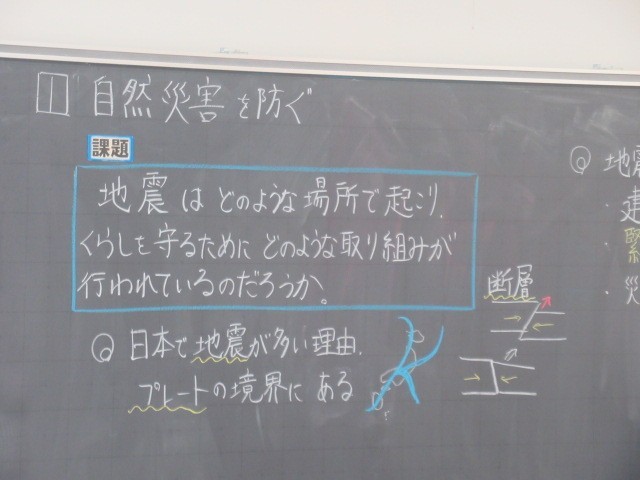 1 自然災害を防ぐ
課題
地震はどのような場所で起こり、
くらしを守るためにどのような取り組みが
行われているのだろうか。
日本で地震が多い理由、
プレートの境界にある
断層
地震
建
緊
災